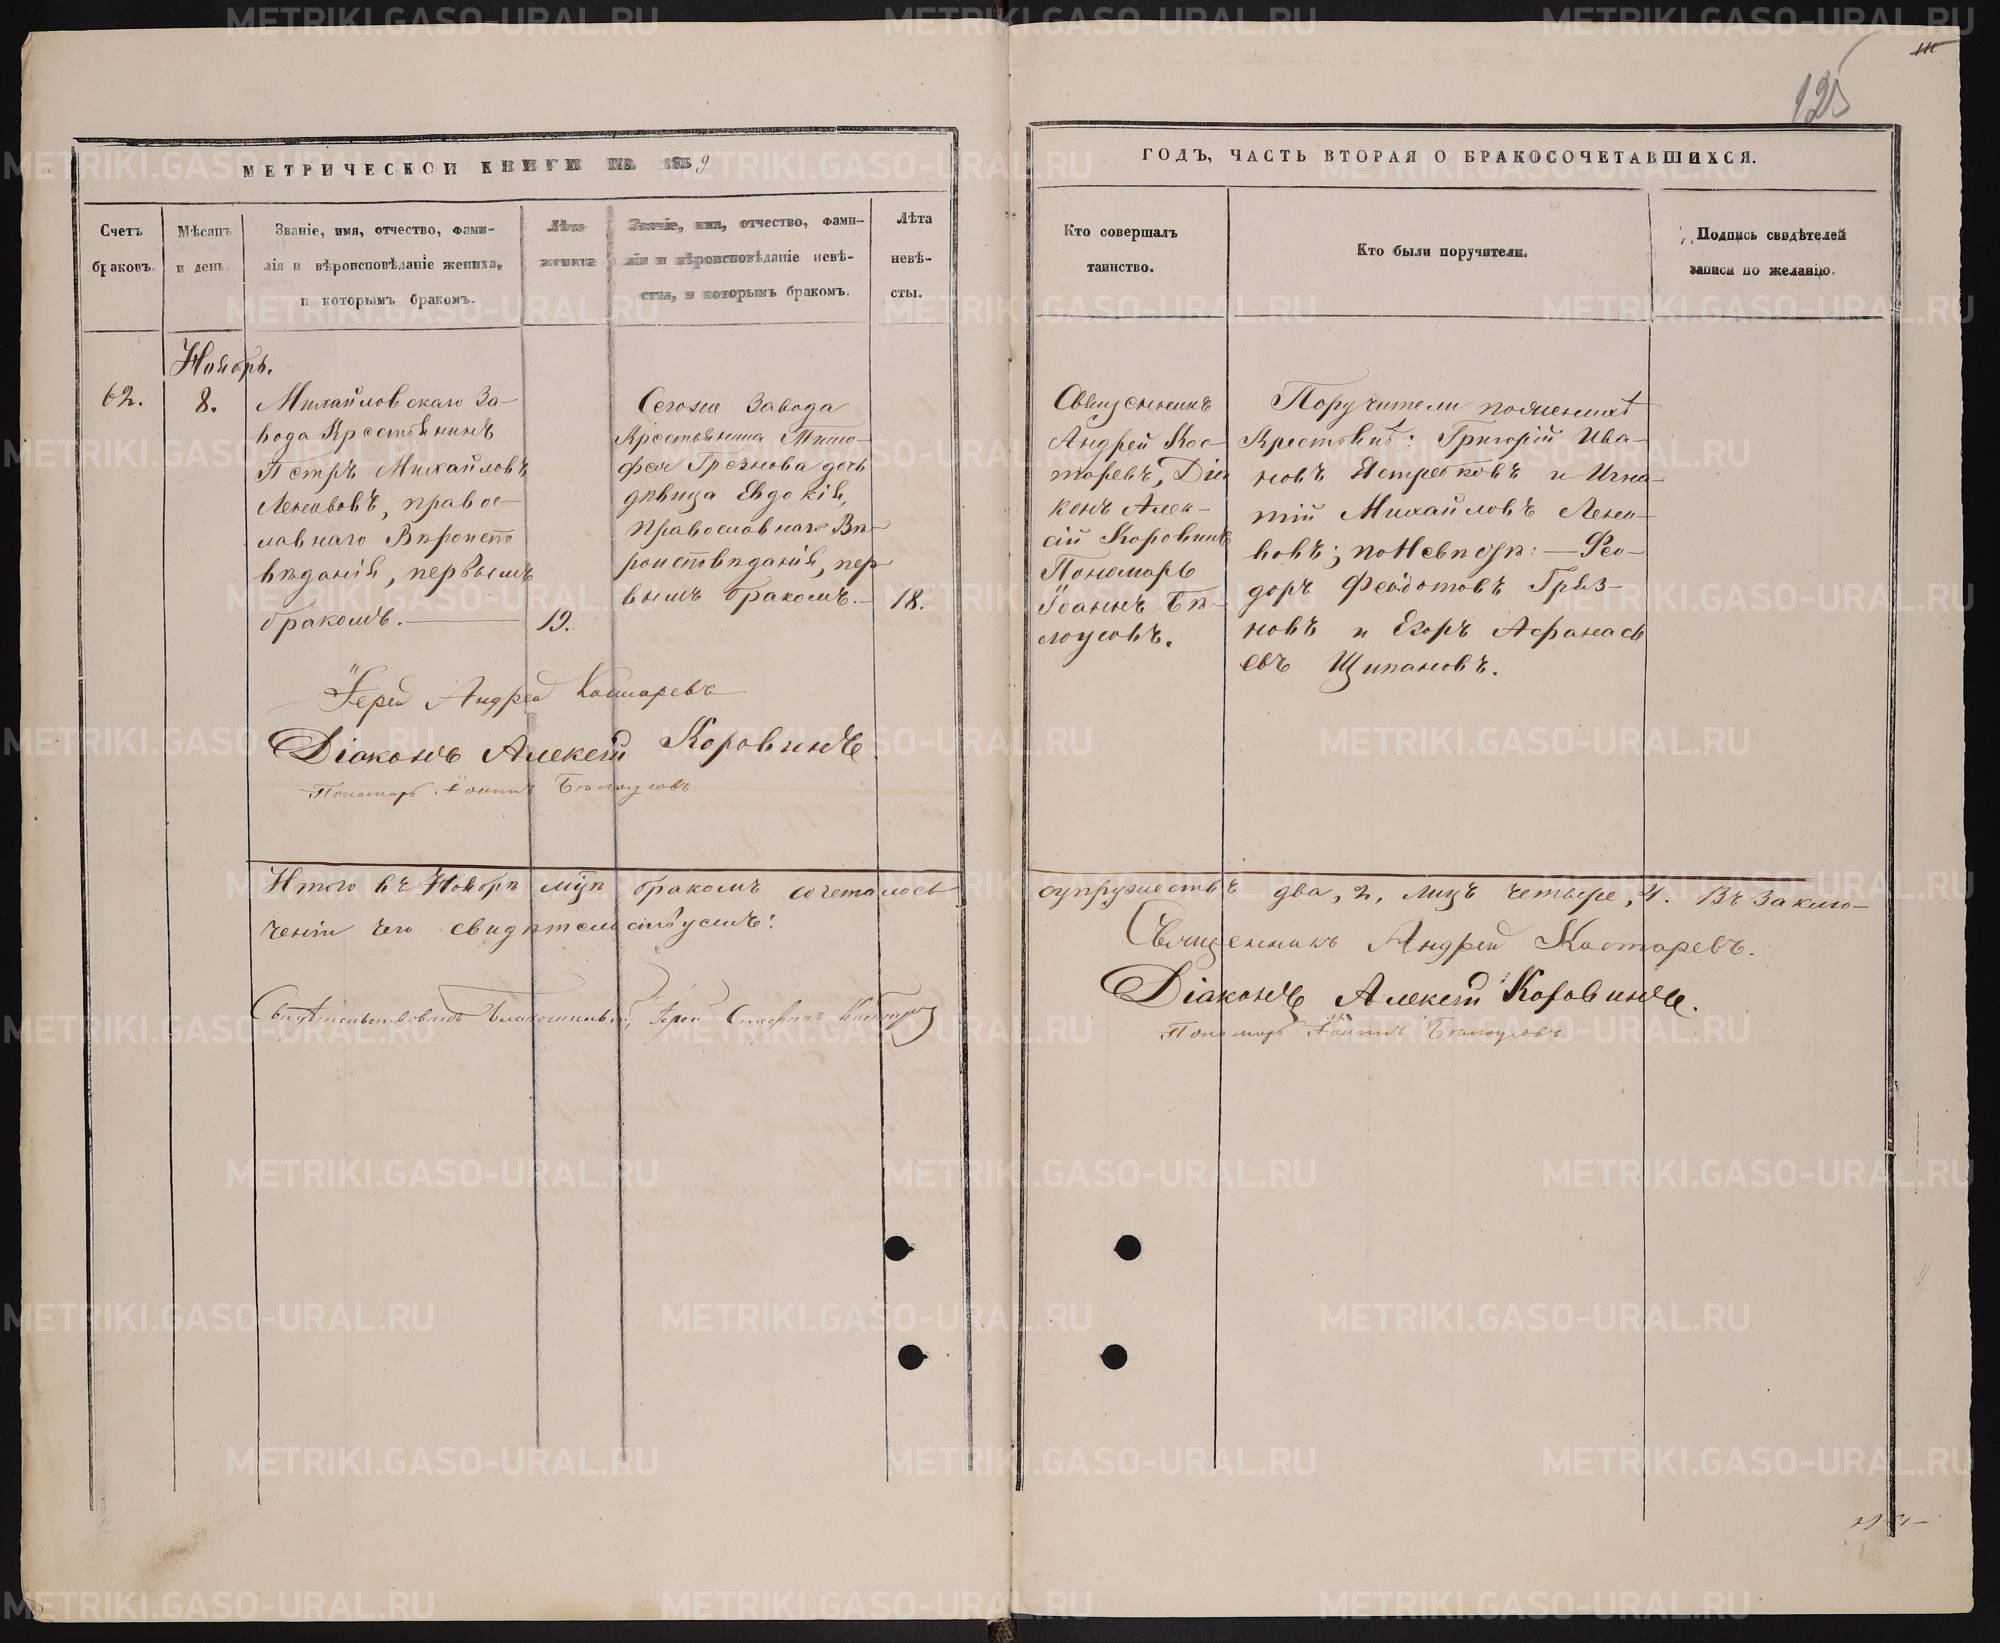 125
МЕТРИЧЕСКОЙ КНИГИ НА 1859
ГОДЪ, ЧАСТЬ ВТОРАЯ О БРАКОСОЧЕТАВШИХСЯ.
Счетъ
браковъ.
Мѣсяцъ
и день.
Званіе, имя, отчество, фами-
лія и вѣроисповѣданіе жениха,
и которымъ бракомъ.
Лѣта
жениха
Званіе, имя, отчество, фами-
лія и вѣроисповѣданіе невѣ-
сты, и которымъ бракомъ.
Лѣта
невѣ-
сты.
Кто совершалъ
таинство.
Кто были поручители.
Подпись свидѣтелей
записи по желанію.
Ноябрь.
62.
8.
Михайловскаго За-
вода Крестьянинъ
Петръ Михайловъ
правос-
лавнаго Вѣроиспо
вѣданія, первымъ
бракомъ.
19.
Сегоже Завода
Крестьянина Тимо-
фея Грезнова дочь
дѣвица Евдокія,
Православнаго Вѣ-
роисповѣданія, пер
вымъ бракомъ.
18.
Священникъ
Андрей Кос-
таревъ, Діа
конъ Алек-
сій Коровинъ
Пономарь
Іоаннъ Бѣ-
лоусовъ.
Поручители по женихѣ
Крестьяне: Григорій Ива-
новъ Ястребковъ и Игна-
тій Михайловъ
по Невѣстѣ: Ѳео-
доръ Ѳеодотовъ Гряз-
новъ и Егоръ Афанась
евъ Щипановъ.
Іерей Андрей Костаревъ
Діаконъ Алексій Коровинъ
Пономарь Іоаннъ Бѣлоусовъ
Итого въ Ноябрѣ м-цѣ бракомъ сочеталось
супружествъ два, 2, лицъ четверо, 4. Въ заклю-
ченіи чего свидѣтельствуемъ:
Священникъ Андрей Костаревъ.
Діаконъ Алексій Коровинъ.
Пономарь Іоаннъ Бѣлоусовъ
Свидѣтельствовалъ Благочинный, Іерей
METRIKI.GASO-URAL.RU